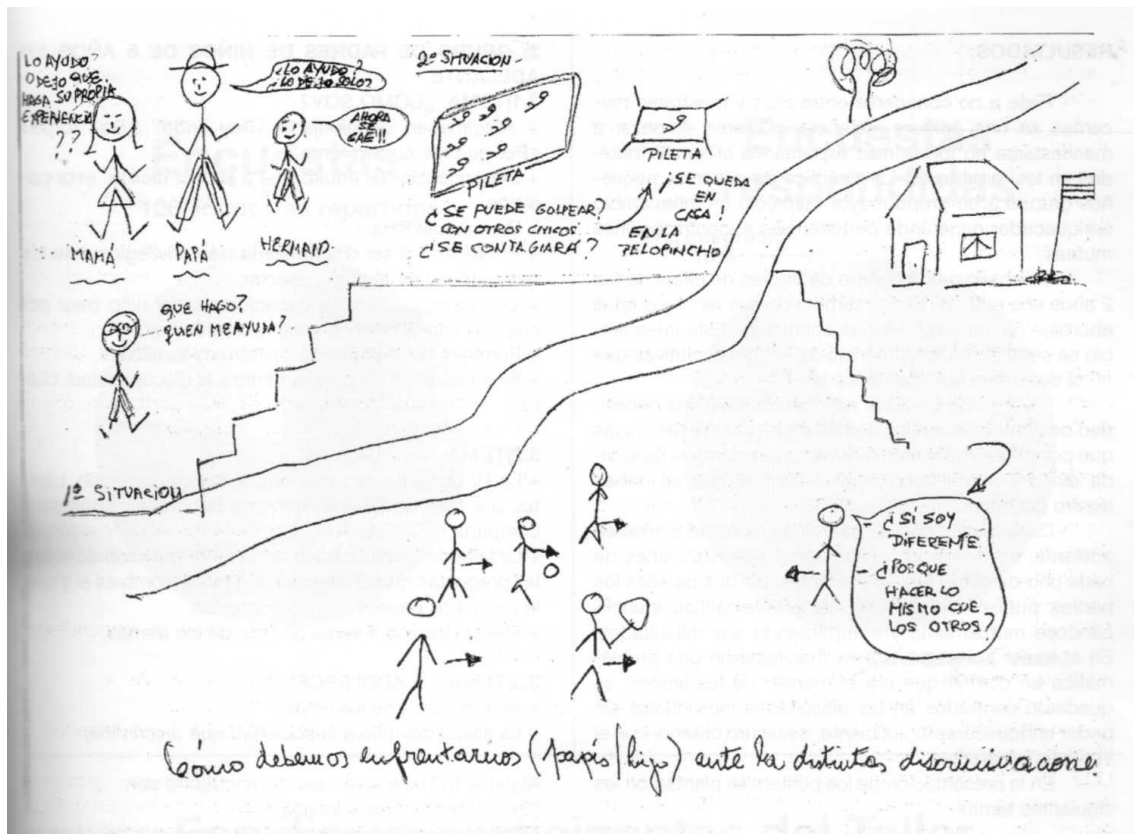 LO AYUDO?
O DEJO QUE
HAGA SU PROPIA
EXPERIENCIA
???
¿LO AYUDO?
¿LO DEJO SOLO?
AHORA
SE
CAE!!!
MAMÁ
PAPÁ
HERMANO.
2ª SITUACION
PILETA
¿SE PUEDE GOLPEAR?
CON OTROS CHICOS.
¿SE CONTAGIARÁ?
PILETA
¡SE QUEDA
EN
CASA!
EN LA
PELOPINCHO
QUE HAGO?
QUIEN ME AYUDA?
1ª SITUACION
¿SI SOY
"DIFERENTE"
¿PORQUE
HACER LO
MISMO QUE
LOS OTROS?
Cómo debemos enfrentarnos (papis-hijo) ante la distintas discriminaciones